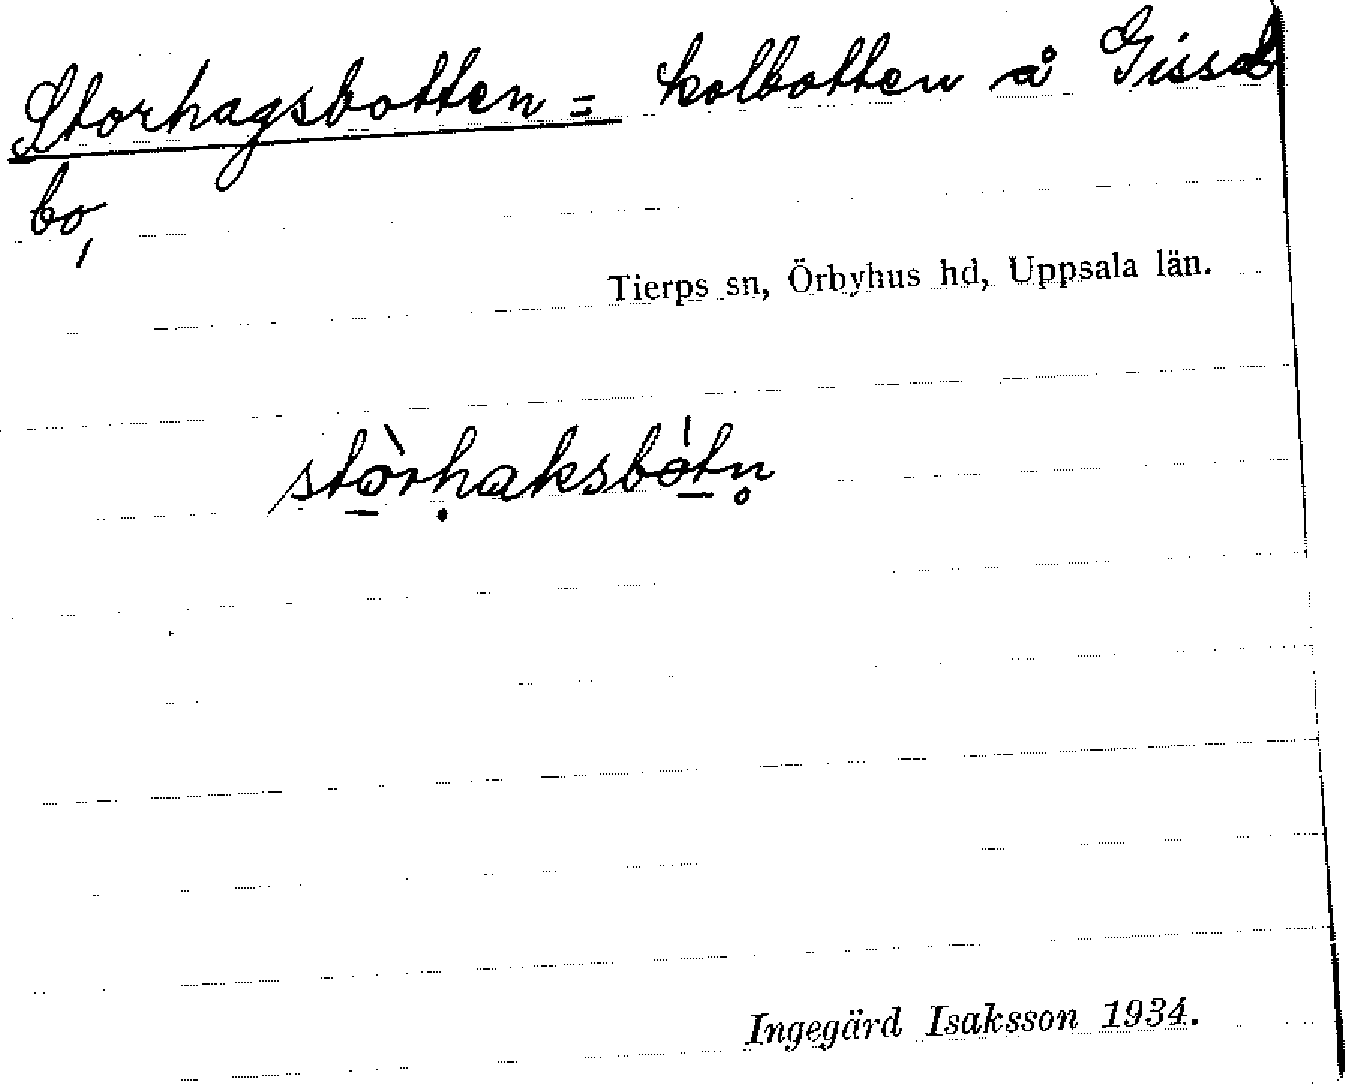 Storhagsbotten = kolbotten å Gissel
bo,
Tierps sn, Örbyhus hd, Uppsala län.
stòrhaksbótn̥
Ingegärd Isaksson 1934.